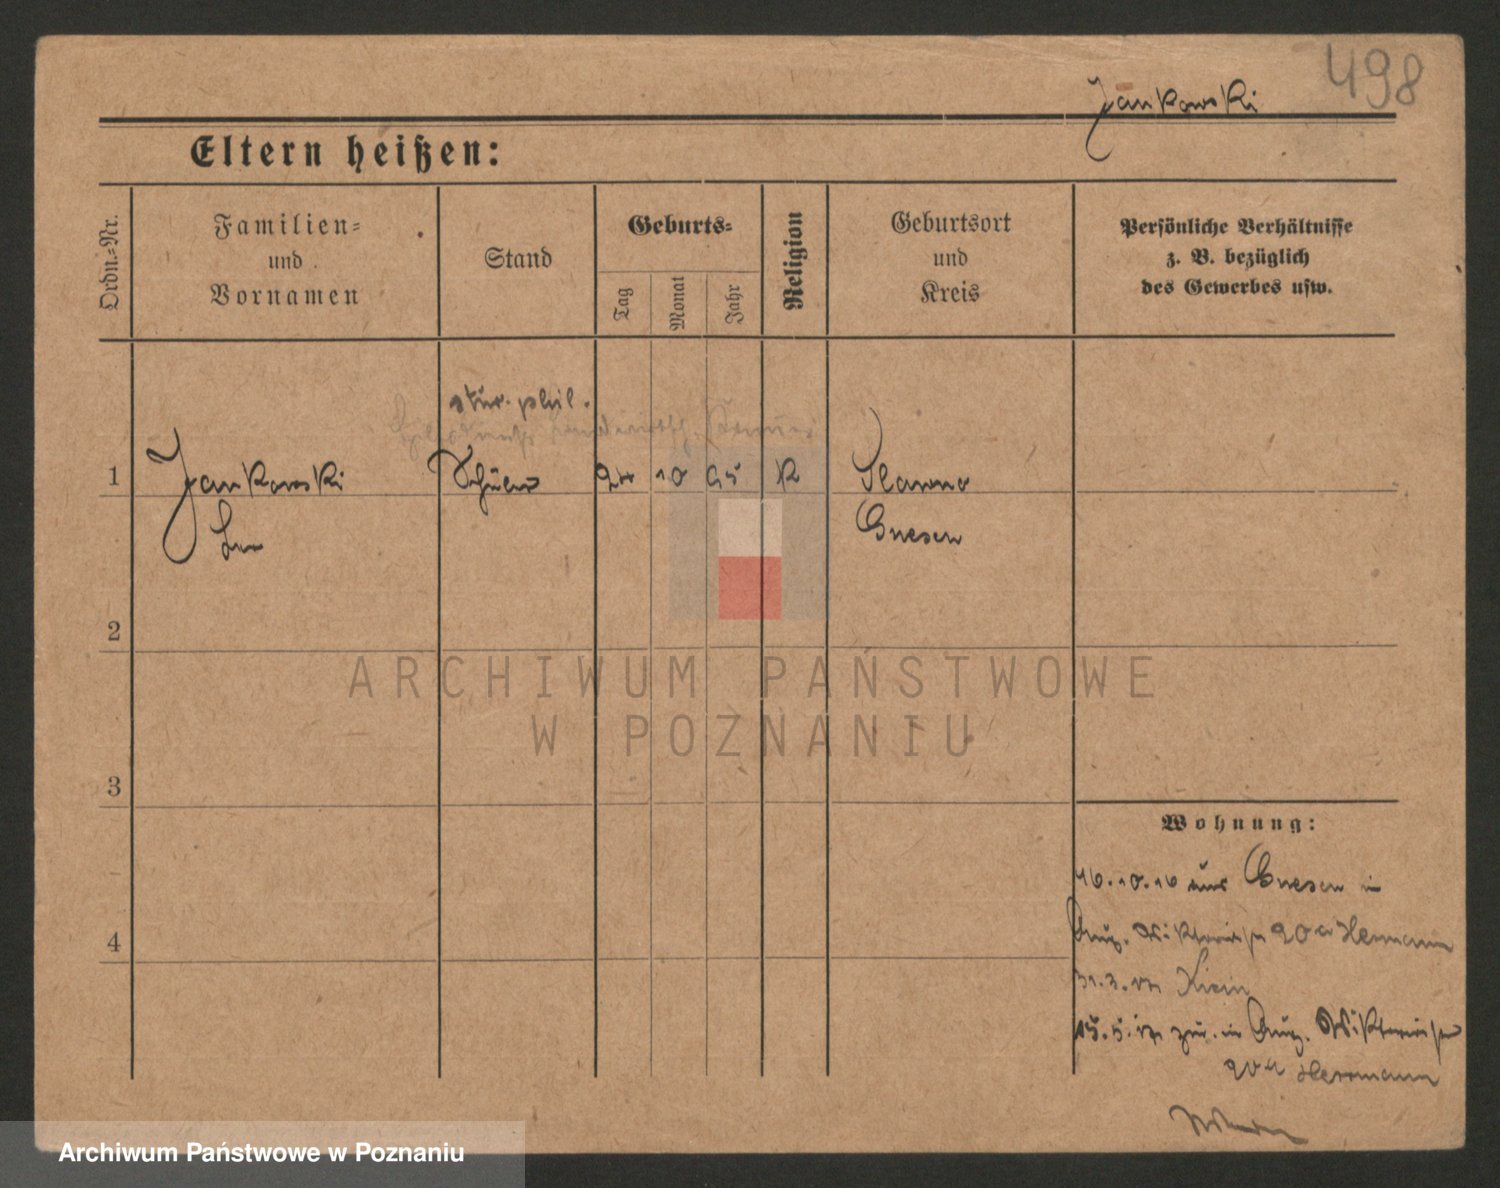 498
Jankowski
Eltern heißen:
Ordn.-Nr.
Familien-
und
Vornamen
Stand
Geburts-
Tag
Monat
Jahr
Religion
Geburtsort
und
Kreis
Persönliche Verhältnisse
z. B. bezüglich
des Gewerbes usw.
phil.
1
Jankowski
Schüler
10
95
K
Gnesen
2
ARCHIWUM PAŃSTWOWE
W POZNANIU
3
Wohnung:
16.10.16 aus Gnesen in
4
Aug. Viktoriastr 20a Hermann
31.3.17
15.5.17 zur. in Aug. Viktoriastr
20a Herrmann
Archiwum Państwowe w Poznaniu